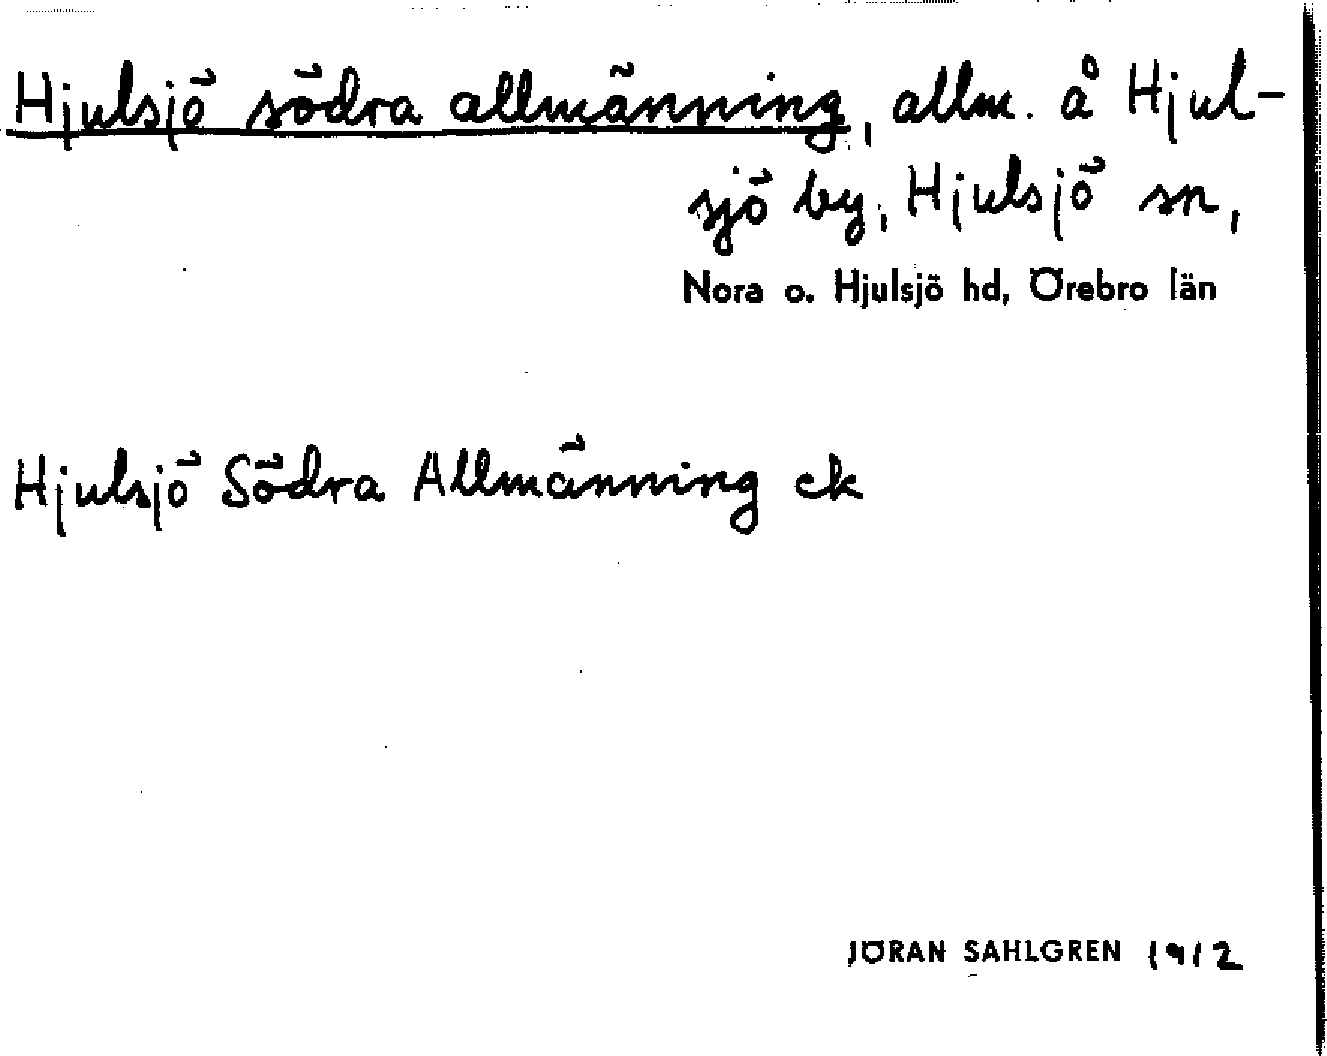 Hjulsjö södra allmänning, allm. å Hjul-
sjö by, Hjulsjö sn,
Nora o. Hjulsjö hd, Örebro län
Hjulsjö Södra Allmänning ek
JÖRAN SAHLGREN 1912